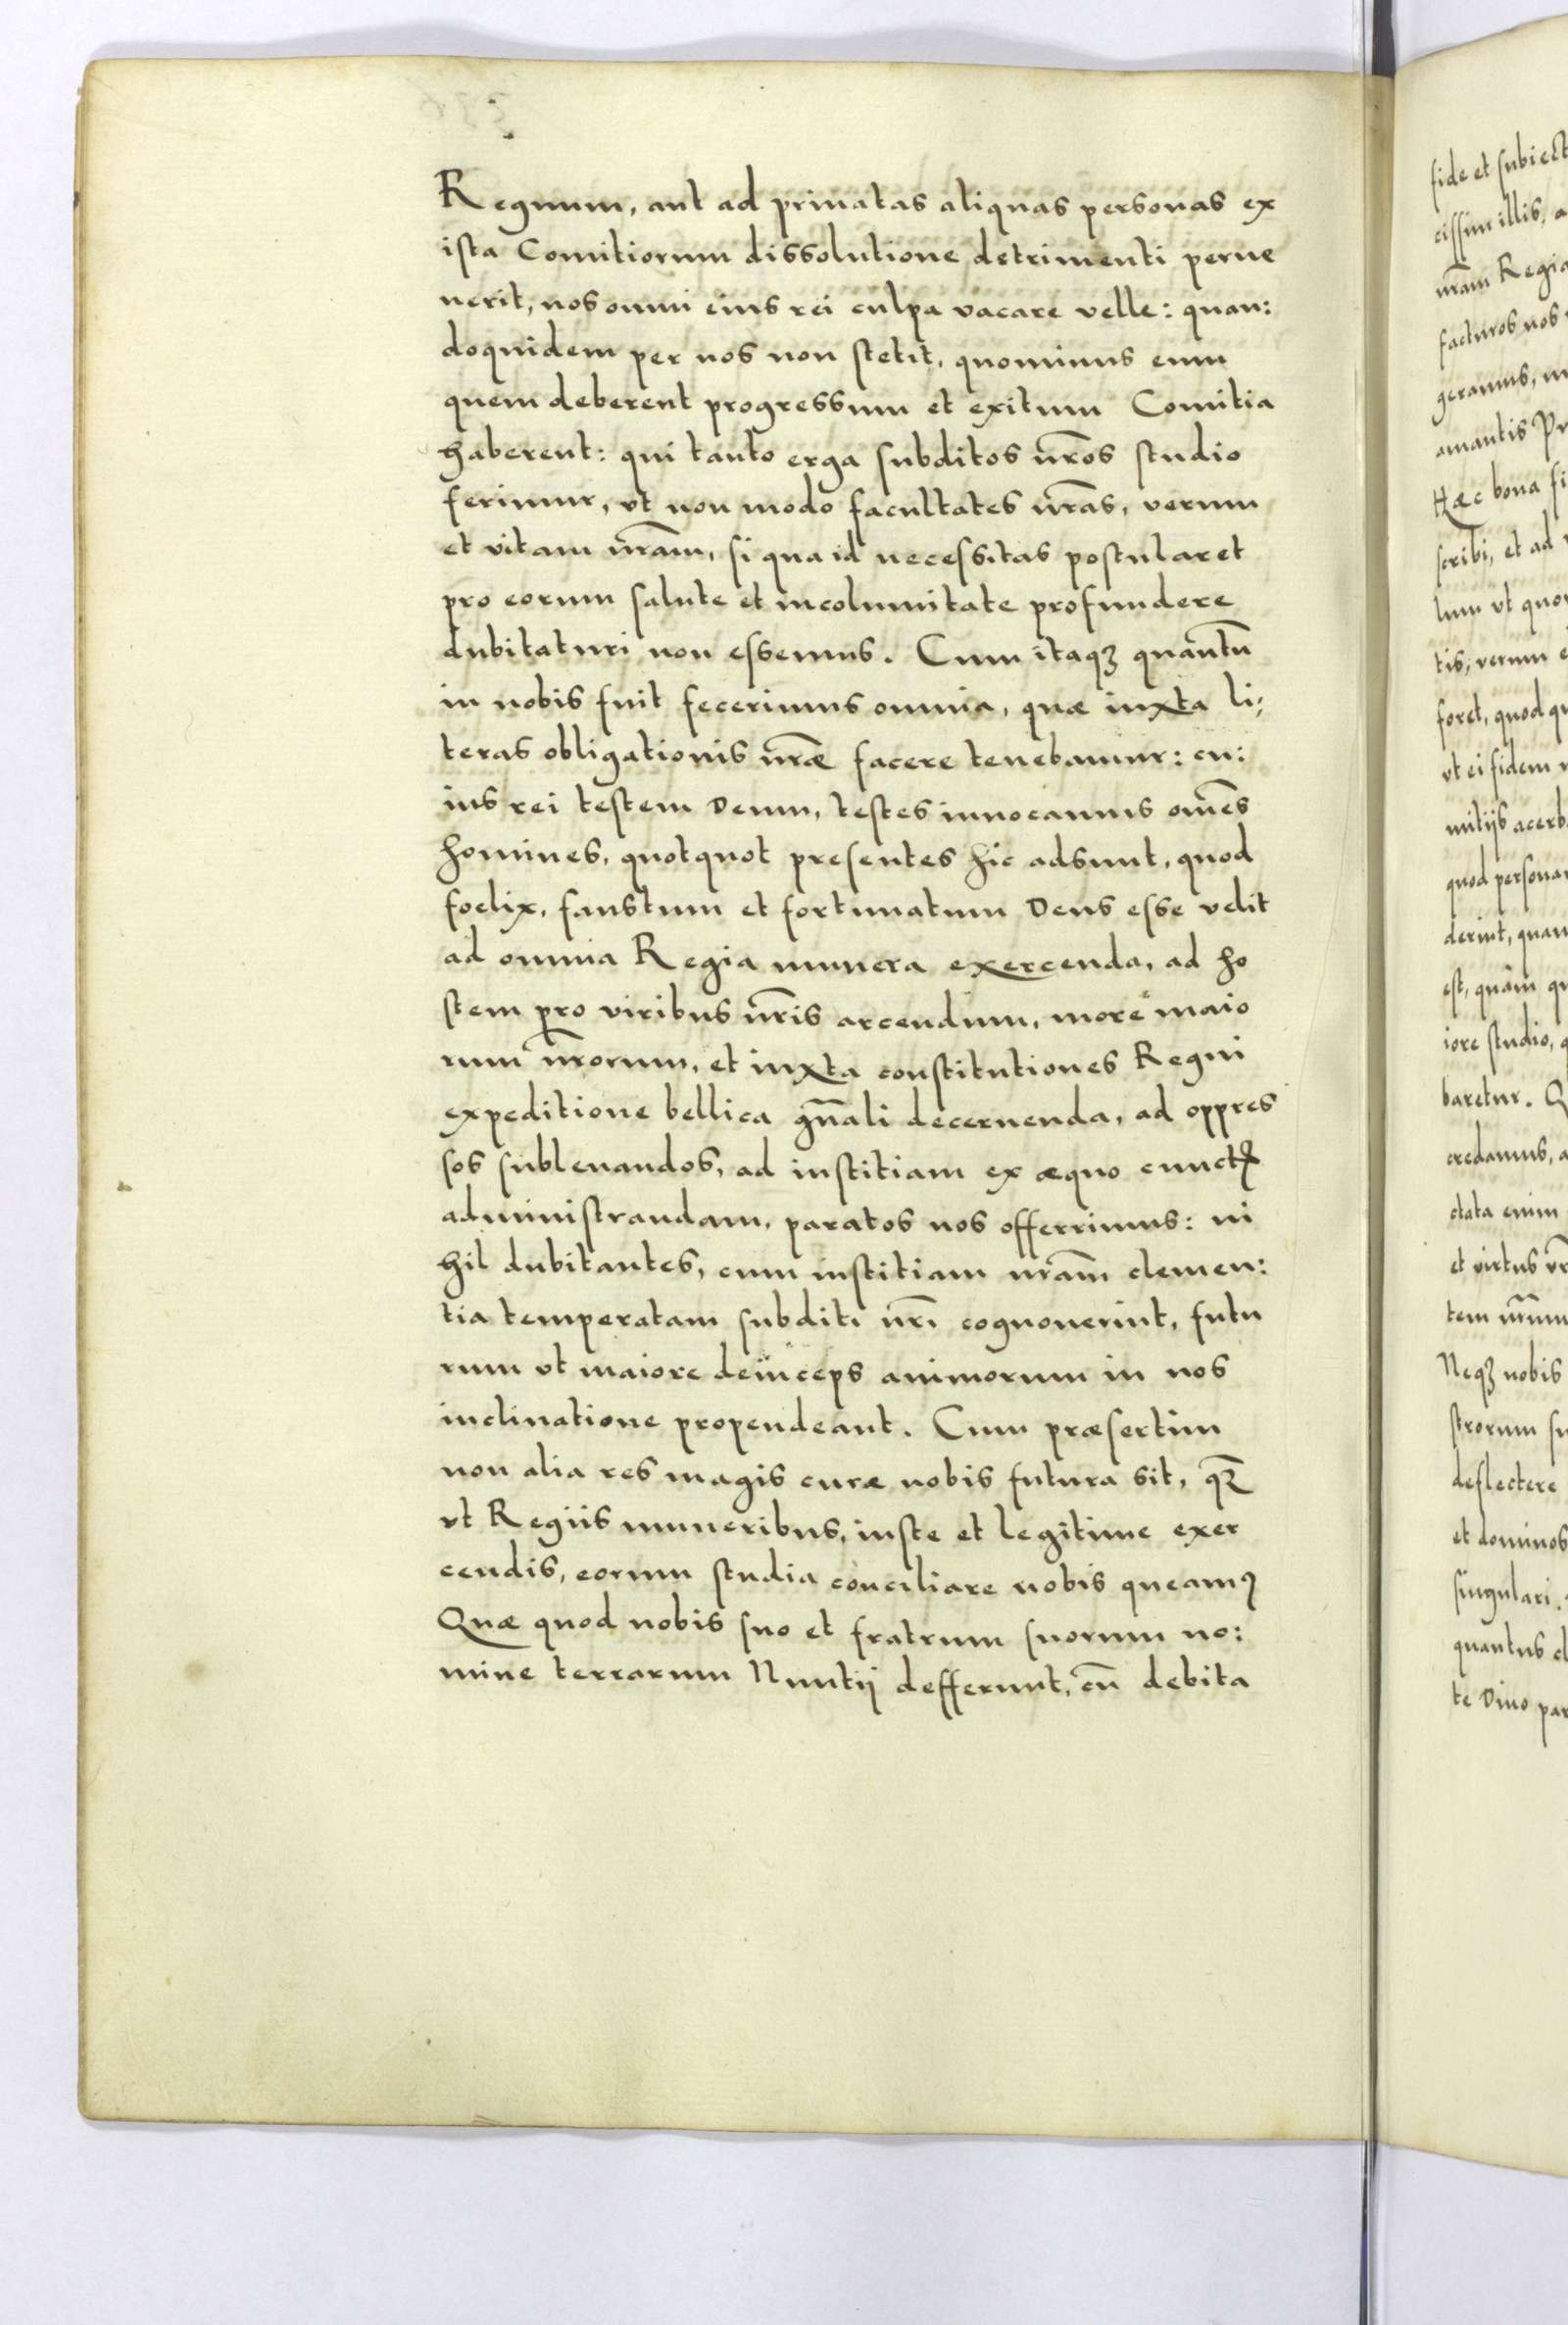 Regnum, aut ad priuatas aliquas personas ex
ista Comitiorum dissolutione detrimenti perue
nerit, nos omni eius rei culpa vacare velle: quan:
doquidem per nos non stetit, quominus eum
quem deberent progressum et exitum Comitia
haberent: qui tanto erga subditos nr̄os studio
ferimur, vt non modo facultates nr̄as, verum
et vitam nr̄am, si qua id necessitas postularet
pro eorum salute et incolumitate profundere
dubitaturi non essemus. Cum itaqꝫ quantū
in nobis fuit fecerimus omnia, quæ iuxta li:
teras obligationis nr̄æ facere tenebamur: cu:
ius rei testem Deum, testes inuocamus om̄es
homines, quotquot presentes hic adsunt, quod
foelix, faustum et fortunatum Deus esse velit
ad omnia Regia munera exercenda, ad ho
stem pro viribus nr̄is arcendum, more maio
rum nr̄orum, et iuxta constitutiones Regni
expeditione bellica gn̄ali decernenda, ad oppres
sos subleuandos, ad iustitiam ex æquo cunctꝭ
administrandam, paratos nos offerrimus: ni
hil dubitantes, cum iustitiam nr̄am clemen:
tia temperatam subditi nr̄i cognouerint, futu
rum vt maiore deinceps animorum in nos
inclinatione propendeant. Cum præsertim
non alia res magis curæ nobis futura sit, qꝫ̄
vt Regiis muneribus, iuste et legitime exer
cendis, eorum studia conciliare nobis queamꝯ
Quæ quod nobis suo et fratrum suorum no:
mine terrarum Nuntij defferunt, cū debita
fide et subiect
cissim illis, a
nr̄am Regia
facturos nos
geramus,
amantis Pr
Hæc bona fi
scribi, et ad
lum vt quo
tis, verum e
foret, quod qu
vt ei fidem
mitijs acerb
quod persona
derint, quam
est, quàm qu
iore studio, q
baretur. Q
credamus, a
ctata enim
et virtus vr̄
tem
Neqꝫ nobis
strorum su
deflectere
et dominos
singulari.
quantus cl
te Diuo par